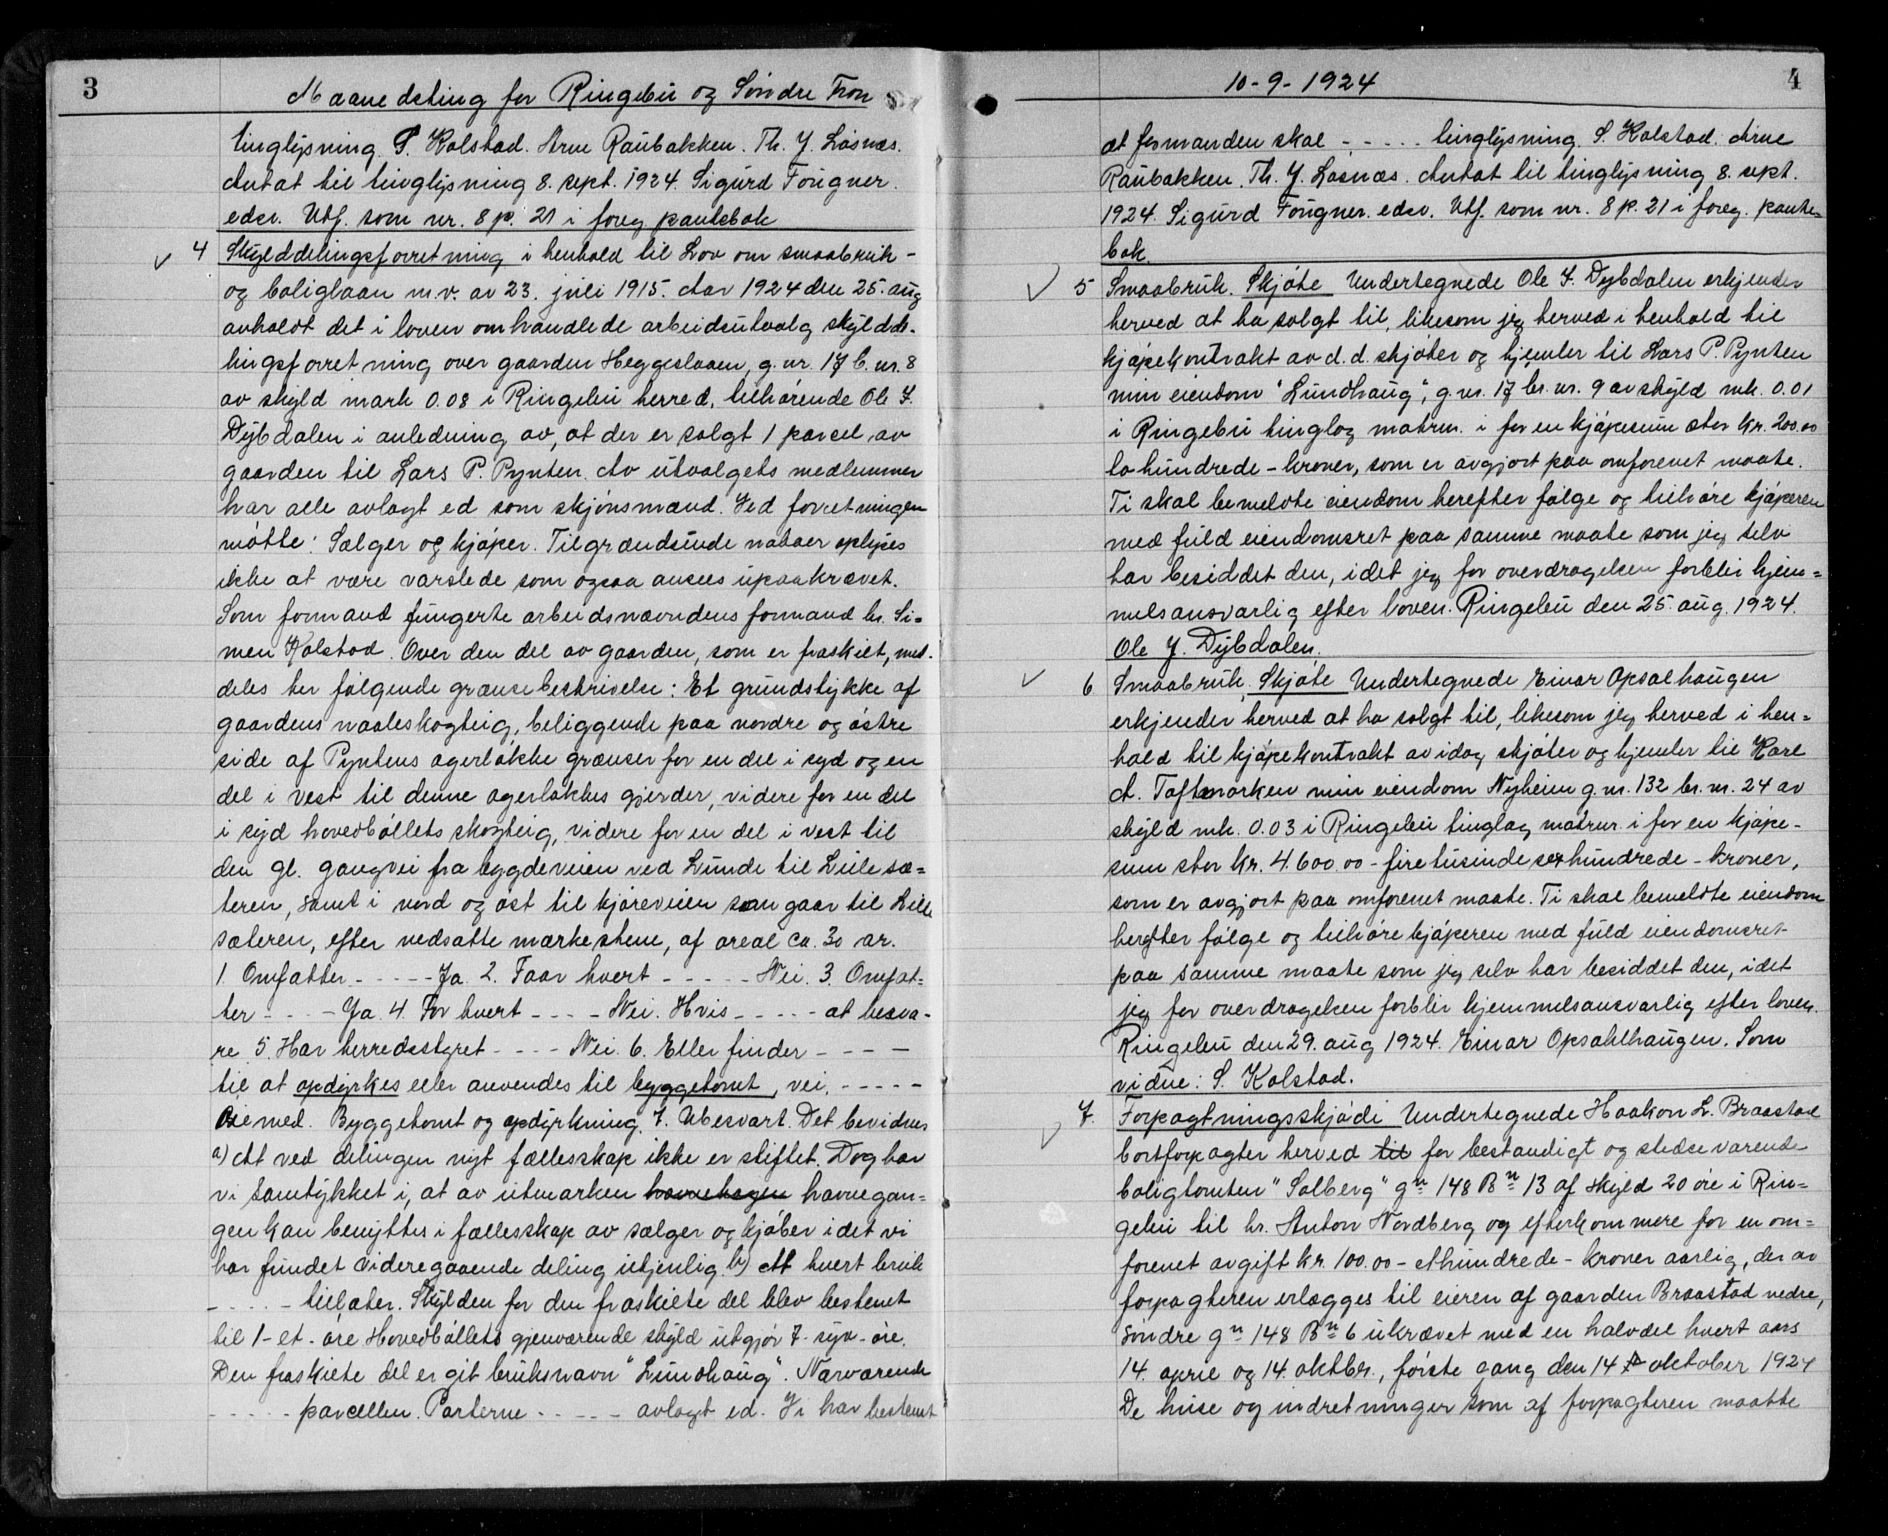 3
Maanedsting for Ringebu og Söndre Fron
tinglysning. S. Kolstad. Arne Raubakken. Th. Y. Losnæs.
Antat til tinglysning 8. sept. 1924. Sigurd Fougner.
edsv. Utf. som nr. 8 p. 21 i foreg pantebok
4 Skylddelingsforretning i henhold til Lov om smaabruk-
og boliglaan m.v. av 23. juli 1915. Aar 1924 den 25. aug
avholdt det i loven omhandlede arbeidsutvalg skyldde-
lingsforretning over gaarden Heggeslaaen, g.nr. 17 b.nr. 8
av skyld mark 0.08 i Ringebu herred, tilhörende Ole J.
Dybdalen i anledning av, at der er solgt 1 parcel av
gaarden til Lars P. Pynten. Av utvalgets medlemmer
har alle avlagt ed som skjönsmænd. Ved forretningen
mötte: Sælger og kjöper. Tilgrændsende naboer oplyses
ikke at være varslede som ogsaa ansees upaakrævet.
Som formand fungerte arbeidsnævndens formand hr. Si=
men Kolstad. Over den del av gaarden, som er fraskilt, med-
deles her fölgende grænsebeskrivelse: Et grundstykke af
gaardens naaleskogteig, beliggende paa nordre og östre
side af Pyntens agerlökke grænser for en del i syd og en
del i vest til denne agerløkkes gjerder, videre for en del
i syd hovedböllets skogteig, videre for en del i vest til
den gl. gangvei fra bygdeveien ved Lunde til Lillesæ=
teren, samt i nord og øst til kjöreveien som gaar til Lille
sæteren, efter nedsatte merkestene, af areal ca. 30 ar.
1. Omfatter - - - - - Ja. 2. Faar hvert - - - - - Nei. 3. Omfat=
ter - - - - Ja. 4. For hvert - - - - Nei. Hvis - - - - - at besva-
re. 5. Har herredsstyret - - - - Nei. 6. Eller finder - - - -
til at opdyrkes eller anvendes til byggetomt, vei, - - - - -
öiemed. Byggetomt og opdyrkning. 7. Ubesvart. Det bevidnes
a) At ved delingen nyt fællesskap ikke er stiftet. Dog har
vi samtykket i, at av utmarken havnehagen havnegan=
gen kan benyttes i fællesskap av sælger og kjöber idet vi
har fundet videregaaende deling utjenlig. b) At hvert bruk
- - - - - tillater. Skylden for den fraskilte del blev bestemt
til 1 - et - öre Hovedböllets gjenværende skyld utgjör 7 - syv - öre.
Den fraskilte del er git bruksnavn "Lundhaug". Nærværende
- - - - - parcellen. Parterne - - - - - avlagt ed. Vi har bestemt
10-9-1924
4
at formanden skal - - - - - tinglysning. S. Kolstad. Arne
Raubakken. Th. Y. Losnæs. Antat til tinglysning 8. sept.
1924. Sigurd Fougner. edsv. Utf. som nr. 8 p. 21 i foreg. pante=
bok.
5 Smaabruk. Skjöte Undertegnede Ole J. Dybdalen erkjender
herved at ha solgt til, likesom jeg herved i henhold til
kjöpekontrakt av d.d. skjöter og hjemler til Lars P. Pynten
min eiendom "Lundhaug", g.nr. 17 br.nr. 9 av skyld mk. 0.01
i Ringebu tinglag matrnr. i for en kjöpesum stor kr. 200.00
to hundrede - kroner, som er avgjort paa omforenet maate.
Ti skal bemeldte eiendom herefter fölge og tilhöre kjöperen
med fuld eiendomsret paa samme maate som jeg selv
har besiddet den, idet jeg for overdragelsen forblir hjem=
melsansvarlig efter loven. Ringebu den 25. aug. 1924.
Ole J. Dybdalen.
6 Smaabruk. Skjöte Undertegnede Einar Opsalhaugen
erkjender herved at ha solgt til, likesom jeg herved i hen=
hold til kjöpekontrakt av idag skjöter og hjemler til Karl
A. Toftmarken min eiendom Nyheim g.nr. 132 br.nr. 24 av
skyld mk. 0.03 i Ringebu tinglag matrnr. i for en kjöpe-
sum stor kr. 4.600.00 - firetusinde sexhundrede - kroner,
som er avgjort paa omforenet maate. Ti skal bemeldte eiendom
herefter fölge og tilhöre kjöperen med fuld eiendomsret
paa samme maate som jeg selv har besiddet den, idet
jeg for overdragelsen forblir hjemmelsansvarlig efter loven.
Ringebu den 29. aug 1924. Einar Opsahlhaugen. Som
vidne: S. Kolstad.
7. Forpagtningsskjödi Undertegnede Haakon L. Braastad
bortforpagter herved til for bestandigt og stedsevarende
boligtomten "Solberg" gn 148 Bn 13 af skyld 20 öre i Rin=
gebu til hr. Anton Nordberg og efterkommere for en om=
forenet avgift kr. 100.00 - ethundrede - kroner aarlig, der av
forpagteren erlægges til eieren af gaarden Braastad nedre,
söndre gn 148 Bn 6 ukrævet med en halvdel hvert aars
14. april og 14. oktbr., förste gang den 14 oktober 1924
De huse og indretninger som af forpagteren maatte